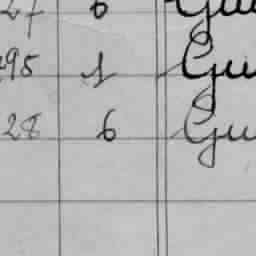 27 6 Gu
295 1 Gu
28 6 Gu